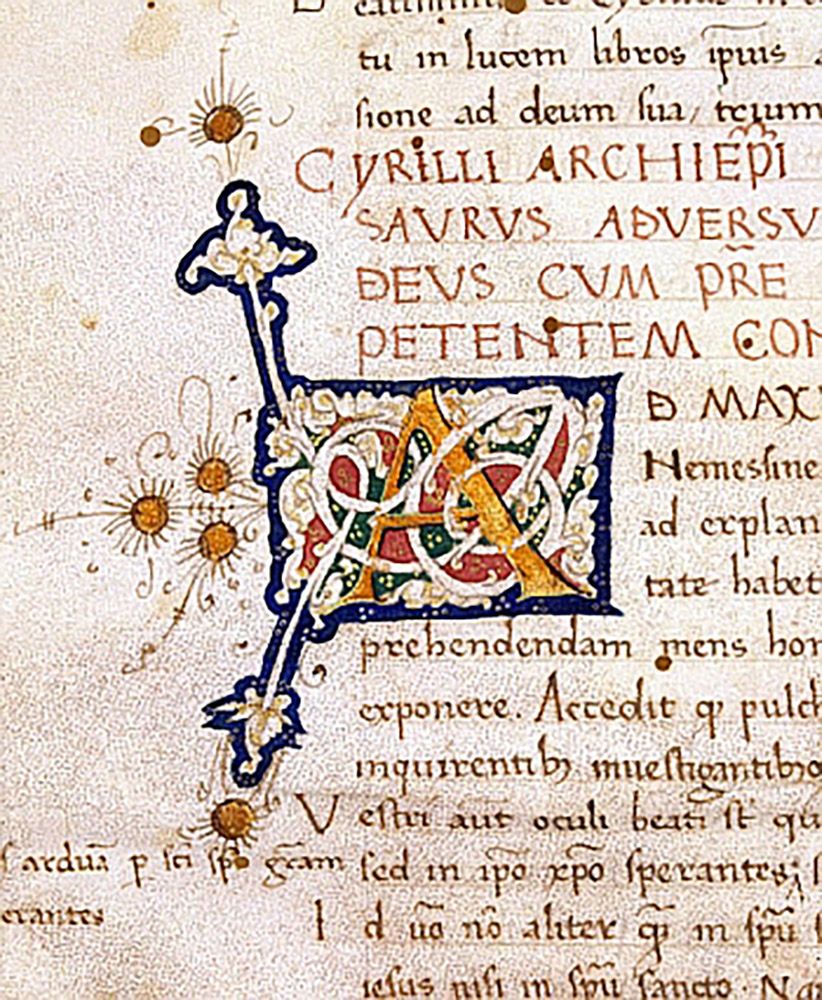 tu in lucem libros ip̄ius
sione ad deum sua, trium
CYRILLI ARCHIEP̄I
SAVRVS ADVERSV
DEUS CVM PR̃E
PETENTEM CON
A D MAXI
Nemessine
ad explan
tate habet
prehendendam mens hom
exponere. Accedit q; pulch
inquirentib; inuestigantib;
Vestri aut oculi beati st̄ qu
sed in ip̄o xp̄o sperantes;
Id ūo nō aliter q̄ in sp̄u
iesus nisi in sp̄u sancto. N
arduā p sc̄i sp̄s gr̄am
erantes